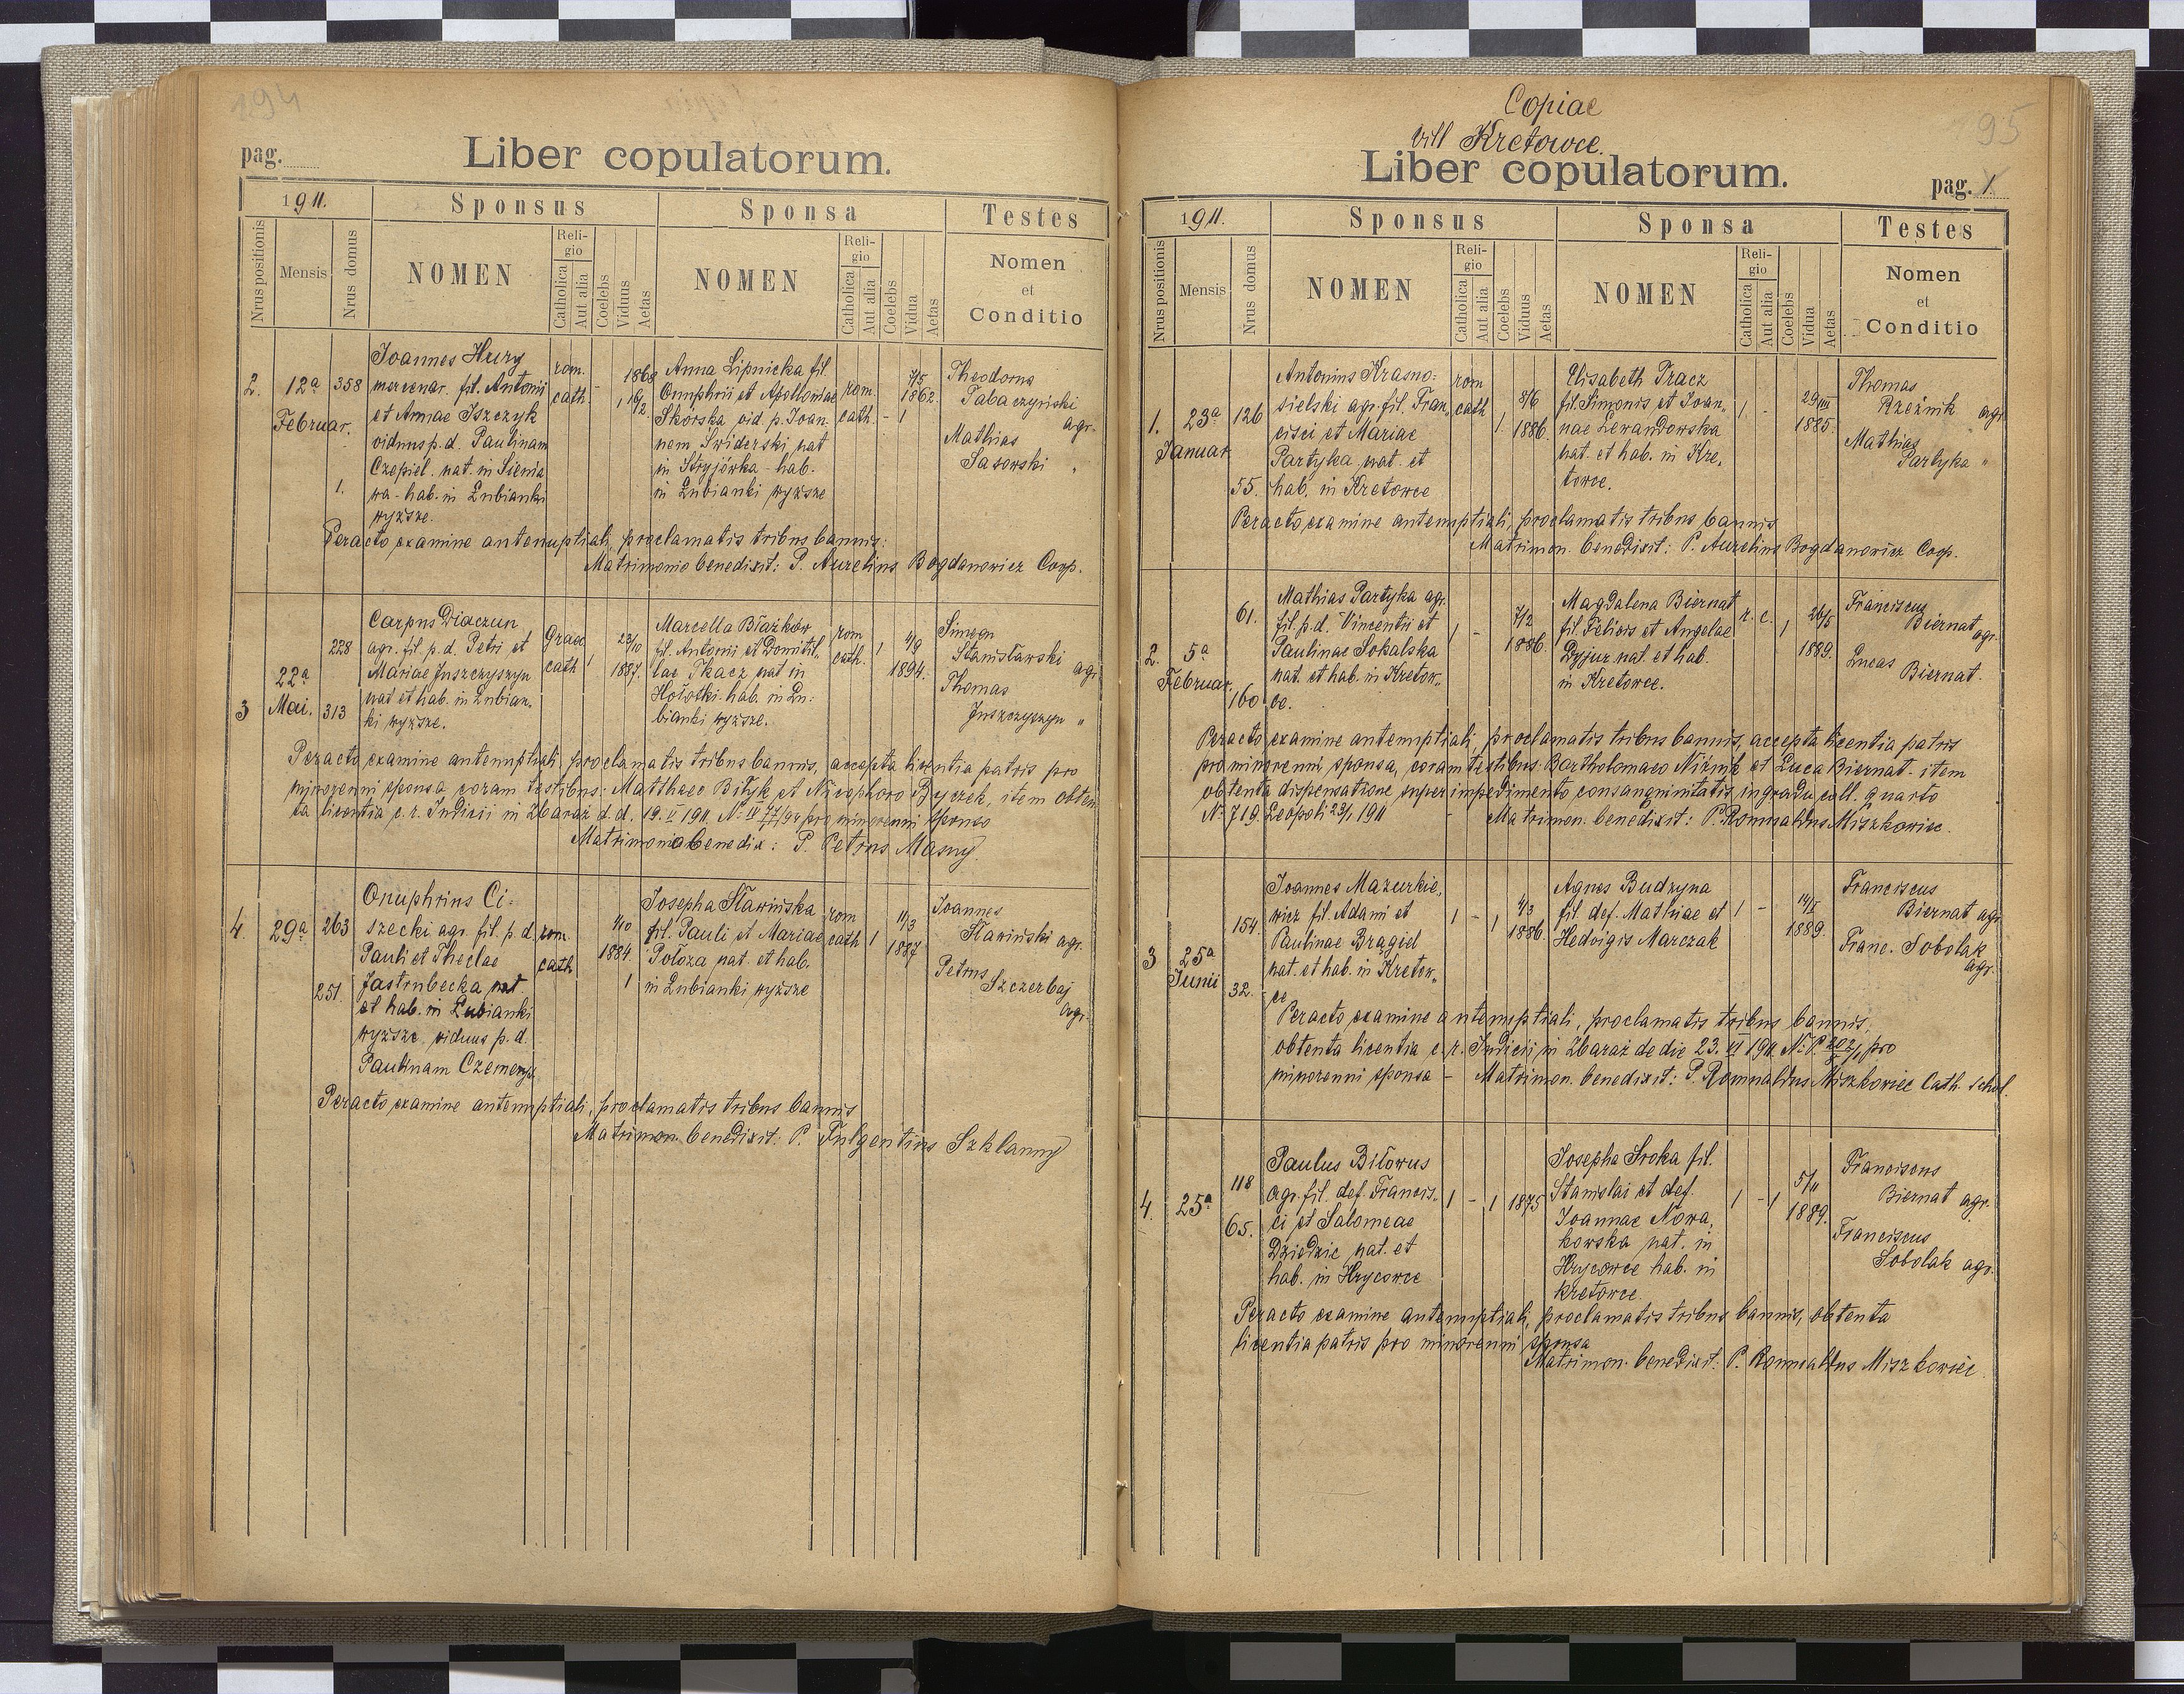 194
pag.
Liber copulatorum.
1911.
Sponsus
Sponsa
Testes
Nrus positionis
Mensis
Nrus domus
NOMEN
Religio
Catholica
Aut alia
Coelebs
Viduus
Aetas
NOMEN
Religio
Catholica
Aut alia
Coelebs
Vidua
Aetas
Nomen
et
Conditio
2. 12a Februar. 358 1.
Joannes Hury
mercenar. fil. Antonii
et Annae Iszczyk
viduus p.d. Paulinam
Czepiel. nat. in Sienia
wa - hab. in Łubianki
wyższe.
rom. cath. - 1 1868 16/2
Anna Lipnicka fil
Onuphrii et Apolloniae
Skórska vid p. Joan-
nem Świderski, nat
in Stryjówka - hab.
in Łubianki wyższe
rom. cath. - 1 7/5 1862.
Theodorus
Tabaczyński
agr.
Mathias
Sasowski "
Peracto examine antenuptiali, proclamatis tribus bannis:
Matrimonio benedixit: P. Aurelius Bogdanowicz Coop.
3 22a Mai. 228 313
Carpus Diaczun
agr. fil. p.d. Petri et
Mariae Juszczyszyn
nat et hab. in Łubian.
ki wyższe.
Graec cath 1 23/10 1887.
Marcella Błażków
fil. Antonii et Domitil,
lae Tkacz nat in
Hołotki hab. in Łu:
bianki wyższe.
rom cath. 1 4/9 1894.
Simeon
Stanisławski
agr
Thomas
Juszczyszyn "
Peracto examine antenuptiali, proclamatis tribus bannis, accepta licentia patris pro
minorenni sponsa coram testibus: Matthaeo Bityk et Nicephoro Byczek, item obten
ta licentia c. r. Iudicii in Zbaraż d.d. 19. V 1911. pro minorenni sponso
Matrimonio benedix: P. Petrus Masny.
4. 29a 263 251.
Onuphrius Ci-
szecki agr. fil. p.d.
Pauli et Theclae
Jastrubecka nat
et hab. in Łubianki
wyższe, viduus p.d.
Paulinam Czemerys
rom. cath 4/10 1884. 1
Josepha Sławińska
fil. Pauli et Mariae
Połoza nat. et hab.
in Łubianki wyższe
rom cath 1 11/3 1887
Joannes
Sławiński agr.
Petrus
Szczerbaj
agr.
Peracto examine antenuptiali, proclamatis tribus bannis
Matrimon. benedixit: P. Fulgentius Szklanny
Copiae
vill Kretowce.
95
Liber copulatorum.
pag. 1.
1911.
Sponsus
Sponsa
Testes
Nrus positionis
Mensis
Nrus domus
NOMEN
Religio
Catholica
Aut alia
Coelebs
Viduus
Aetas
NOMEN
Religio
Catholica
Aut alia
Coelebs
Vidua
Aetas
Nomen
et
Conditio
1. 23a Januar. 126 55.
Antonius Krasno-
sielski agr. fil. Fran,
cisci et Mariae
Partyka nat. et
hab. in Kretowce
rom cath 1 8/6 1886.
Elisabeth Tracz
fil. Simonis et Joan,,
nae Lewandowska
nat. et hab. in Kre,
towce.
1. - 29/III 1885.
Thomas
Rzeźnik agr
Mathias
Partyka "
Peracto examine antenuptiali, proclamatis tribus bannis
Matrimon. benedixit: P. Aurelius Bogdanowicz Coop.
2. 5a Februar. 61. 160
Mathias Partyka agr.
fil. p.d. Vincentii et
Paulinae Sokalska
nat. et hab. in Kretow,,
ce.
1 - 7/2 1886.
Magdalena Biernat
fil. Felicis et Angelae
Dyjur nat. et hab.
in Kretowce.
r. c. 1 26/5 1889.
Franciscus
Biernat agr.
Lucas
Biernat.
Peracto examine antenuptiali, proclamatis tribus bannis, accepta licentia patris
pro minorenni sponsa, coram testibus: Bartholomaeo Niźnik et Luca Biernat - item
obtenta dispensatione super impedimento consanguinitatis, in gradu coll. quarto
No 719. Leopoli 23/1 1911 - Matrimon. benedixit: P. Romualdus Miszkowiec.
3 25a Junii 154. 32.
Joannes Mazurkie,
wicz fil. Adami et
Paulinae Brągiel
nat. et hab. in Kretow,,
ce
1 - 1 4/3 1886.
Agnes Budzyna
fil. def. Mathiae et
Hedvigis Marczak
1 - 14/I 1889.
Franciscus
Biernat agr.
Franc. Sobolak
agr.
Peracto examine antenuptiali, proclamatis tribus bannis,
obtenta licentia c. r. Iudicii in Zbaraż de die 23. VI 1911. No P. 202/11 pro
minorenni sponsa - Matrimon. benedixit: P. Romualdus Miszkowiec Cath. schol.
4. 25a 118 65.
Paulus Biłowus
agr. fil. def. Francis,,
ci et Salomeae
Dziedzic nat. et
hab. in Hrycowce
1 - 1 1875
Josepha Sroka fil.
Stanislai et def.
Joannae Nowa,
kowska nat. in
Hrycowce hab. in
Kretowce.
1 - 1 5/11 1889.
Franciscus
Biernat agr.
Franciscus
Sobolak agr.
Peracto examine antenuptiali, proclamatis tribus bannis, obtenta
licentia patris pro minorenni sponsa
Matrimon. benedixit: P. Romualdus Miszkowiec